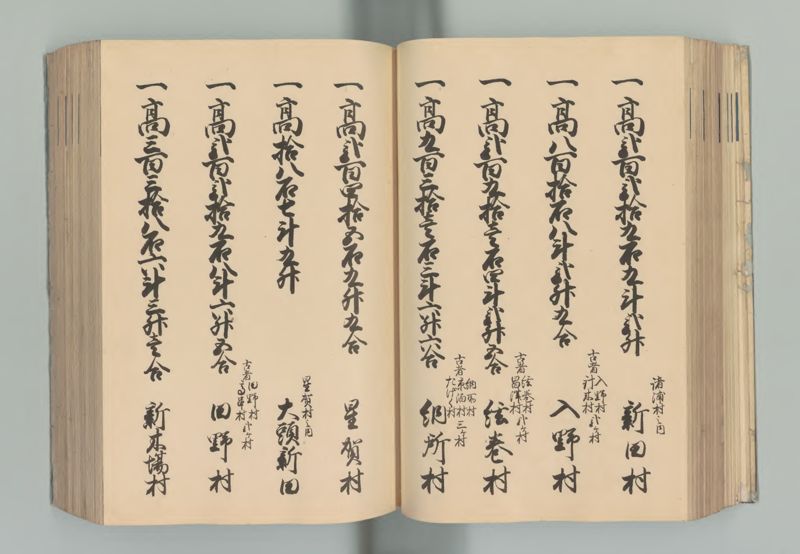 一高弐百弐拾九石九斗弐升
諸浦村之内
新田村
一高八百拾石八斗弐升九合
古者入野村
計木村弐ヶ村
入野村
一高弐百九拾壱石四斗弐升五合
古者絃巻村
村弐ヶ村
絃巻村
一高九百三拾壱石三斗六升六合
古者
村三ヶ村
納所村
一高弐百四拾五石九升九合
星賀村
一高拾八石七斗九升
星賀村之内
大頭新田
一高弐百弐拾九石八斗六升五合
古者田野村
村弐ヶ村
田野村
一高三百三拾八石六斗三升壱合
新木場村